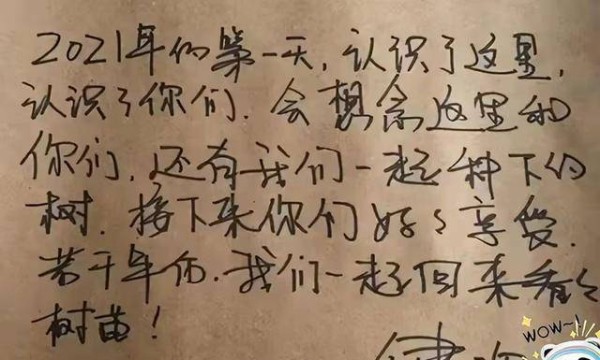 2021年的第一天,认识了这里,
认识了你们.会想念这里和
你们,还有我们一起种下的
树.接下来你们好〻享受.
若干年后.我们一起回来看〻
树苗!
WOW~!